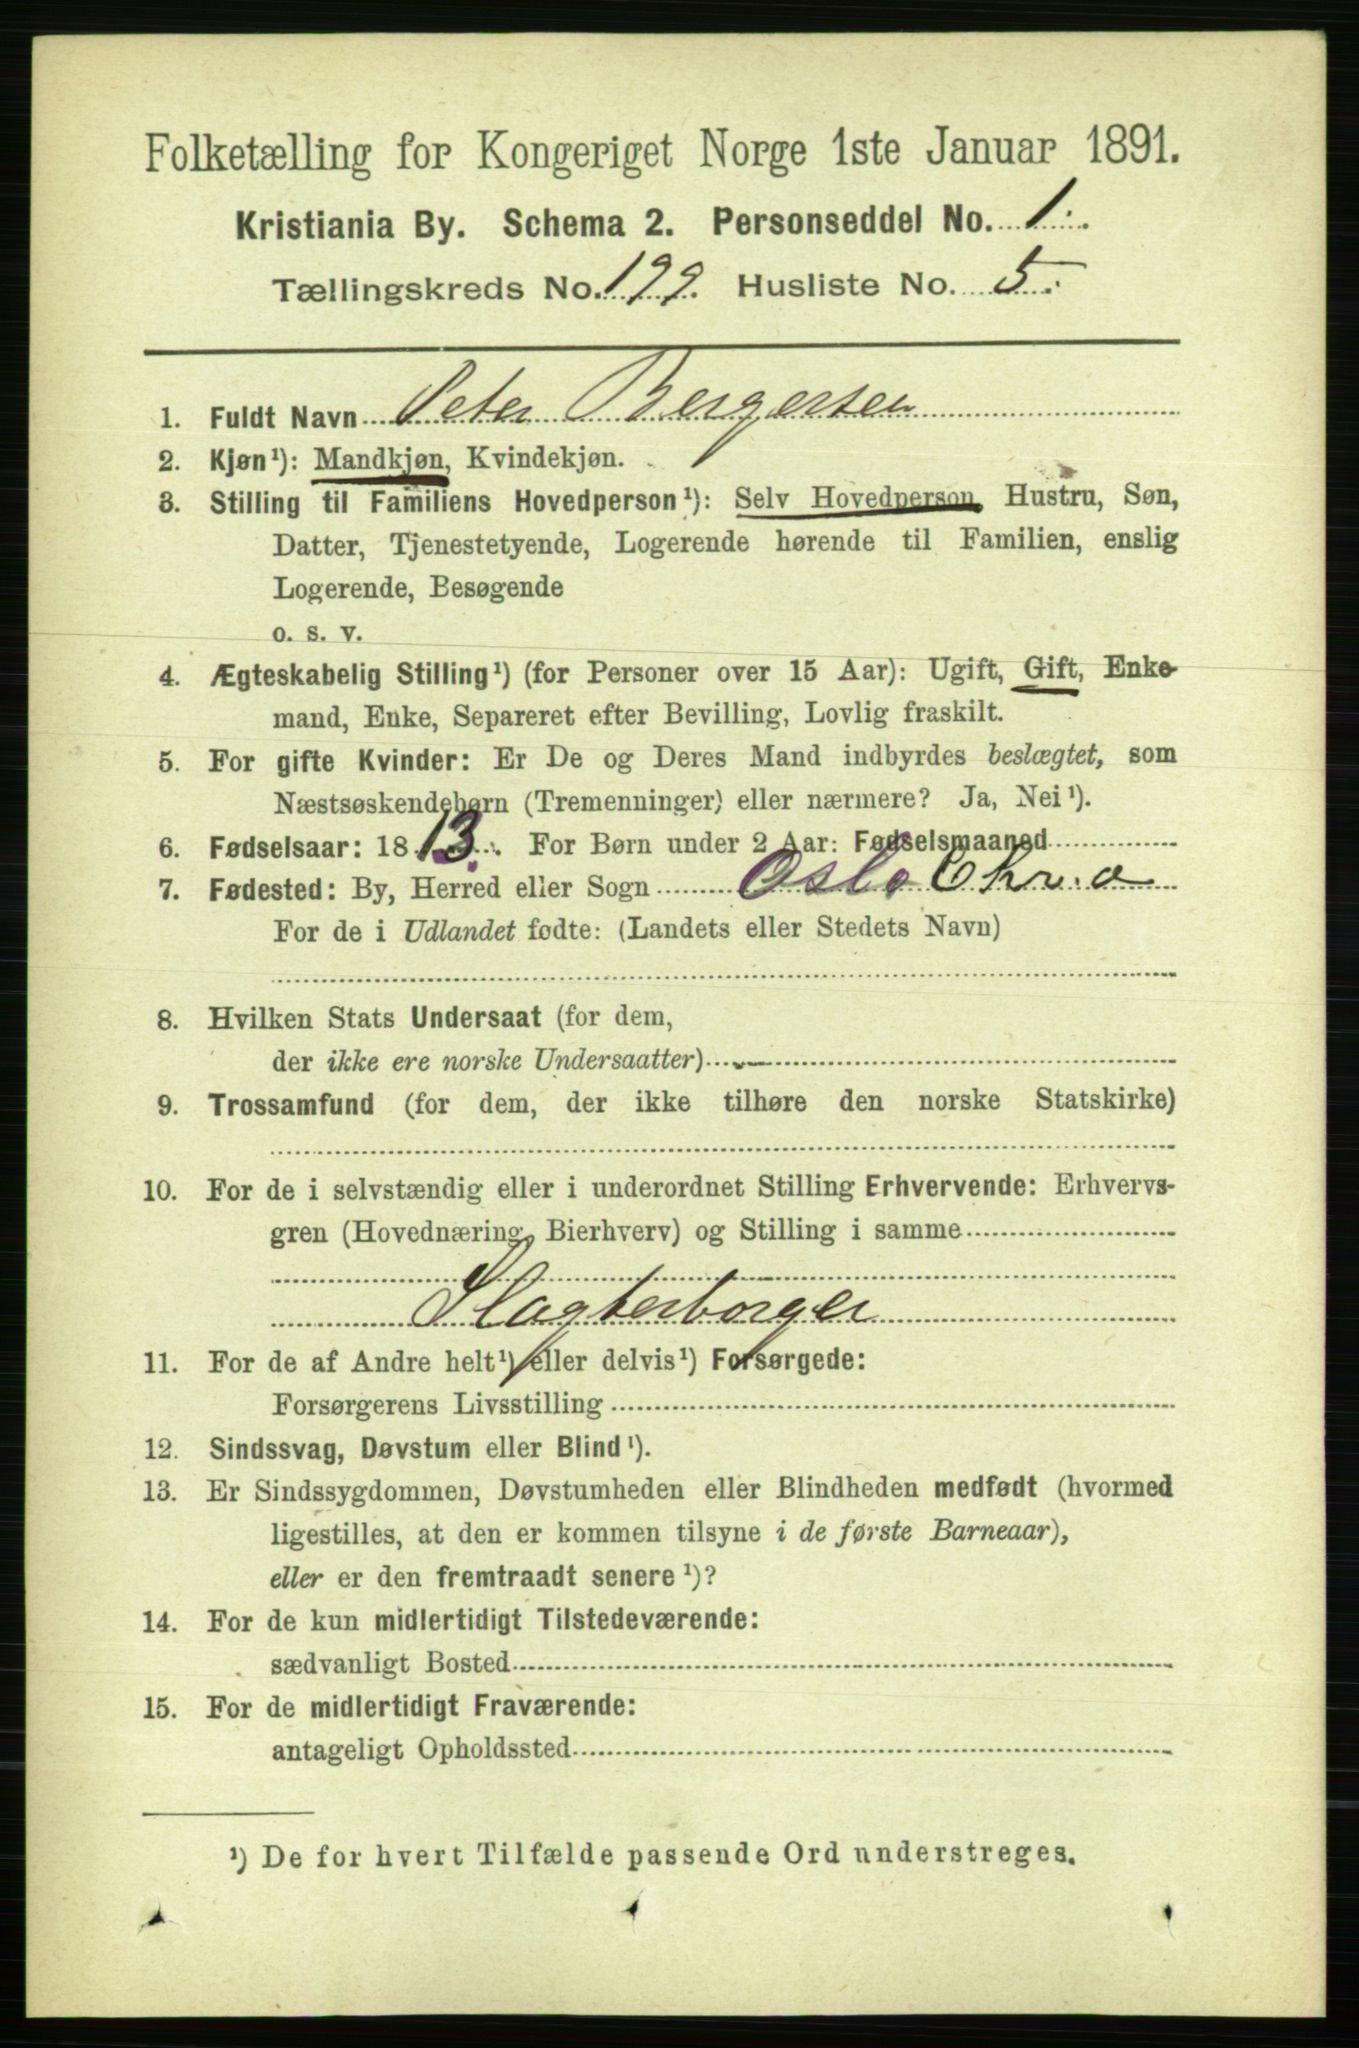 Folketælling for Kongeriget Norge 1ste Januar 1891.
Kristiania By. Schema 2. Personseddel No. 1.
Tællingskreds No. 199. Husliste No. 5.
1. Fuldt Navn Peter Bergersen
2. Kjøn¹): Mandkjøn, Kvindekjøn.
3. Stilling til Familiens Hovedperson¹): Selv Hovedperson, Hustru, Søn,
Datter, Tjenestetyende, Logerende hørende til Familien, enslig
Logerende, Besøgende
o. s. v.
4. Ægteskabelig Stilling¹) (for Personer over 15 Aar): Ugift, Gift, Enke-
mand, Enke, Separeret efter Bevilling, Lovlig fraskilt.
5. For gifte Kvinder: Er De og Deres Mand indbyrdes beslægtet, som
Næstsøskendebørn (Tremenninger) eller nærmere? Ja, Nei¹).
6. Fødselsaar: 1813. For Børn under 2 Aar: Fødselsmaaned
7. Fødested: By, Herred eller Sogn Oslo Chr.a
For de i Udlandet fødte: (Landets eller Stedets Navn)
8. Hvilken Stats Undersaat (for dem,
der ikke ere norske Undersaatter)
9. Trossamfund (for dem, der ikke tilhøre den norske Statskirke)
10. For de i selvstændig eller i underordnet Stilling Erhvervende: Erhvervs-
gren (Hovednæring, Bierhverv) og Stilling i samme
Slagterborger
11. For de af Andre helt¹) eller delvis¹) Forsørgede:
Forsørgerens Livsstilling
12. Sindssvag, Døvstum eller Blind¹).
13. Er Sindssygdommen, Døvstumheden eller Blindheden medfødt (hvormed
ligestilles, at den er kommen tilsyne i de første Barneaar),
eller er den fremtraadt senere¹)?
14. For de kun midlertidigt Tilstedeværende:
sædvanligt Bosted
15. For de midlertidigt Fraværende:
antageligt Opholdssted
¹) De for hvert Tilfælde passende Ord understreges.